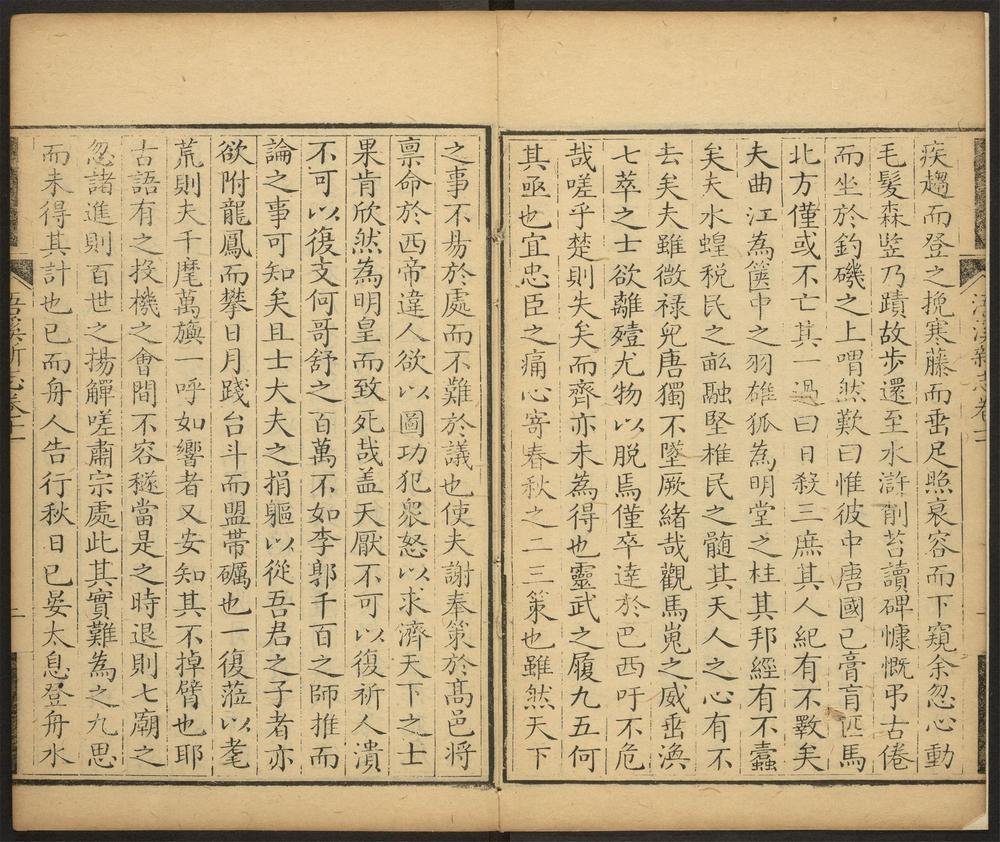 疾趨而登之挽寒藤而垂足照衰容而下窺余忽心動
毛髮森豎乃蹟故步還至水滸削苔讀碑慷慨弔古倦
而坐於釣磯之上喟然歎曰惟彼中唐國已膏肓匹馬
北方僅或不亡其一過曰日殺三庶其人紀有不斁矣
夫曲江為篋中之羽雄狐為明堂之柱其邦經有不蠹
矣夫水蝗稅民之畝融堅椎民之髓其天人之心有不
去矣夫雖微祿兒唐獨不墜厥緒哉觀馬嵬之威垂渙
七萃之士欲離殪尤物以脫焉僅卒達於巴西吁不危
哉嗟乎楚則失矣而齊亦未為得也靈武之履九五何
其亟也宜忠臣之痛心寄春秋之二三策也雖然天下
之事不易於處而不難於議也使夫謝奉策於高邑將
稟命於西帝違人欲以圖功犯衆怒以求濟天下之士
果肯欣然為明皇而致死哉盖天厭不可以復祈人潰
不可以復支何哥舒之百萬不如李郭千百之師推而
論之事可知矣且士大夫之捐軀以從吾君之子者亦
欲附龍鳳而攀日月踐台斗而盟帶礪也一復蒞以耄
荒則夫千麾萬旟一呼如響者又安知其不掉臂也耶
古語有之投機之會間不容穟當是之時退則七廟之
忽諸進則百世之揚觶嗟肅宗處此其實難為之九思
而未得其計也已而舟人告行秋日已晏太息登舟水
浯溪新志卷二